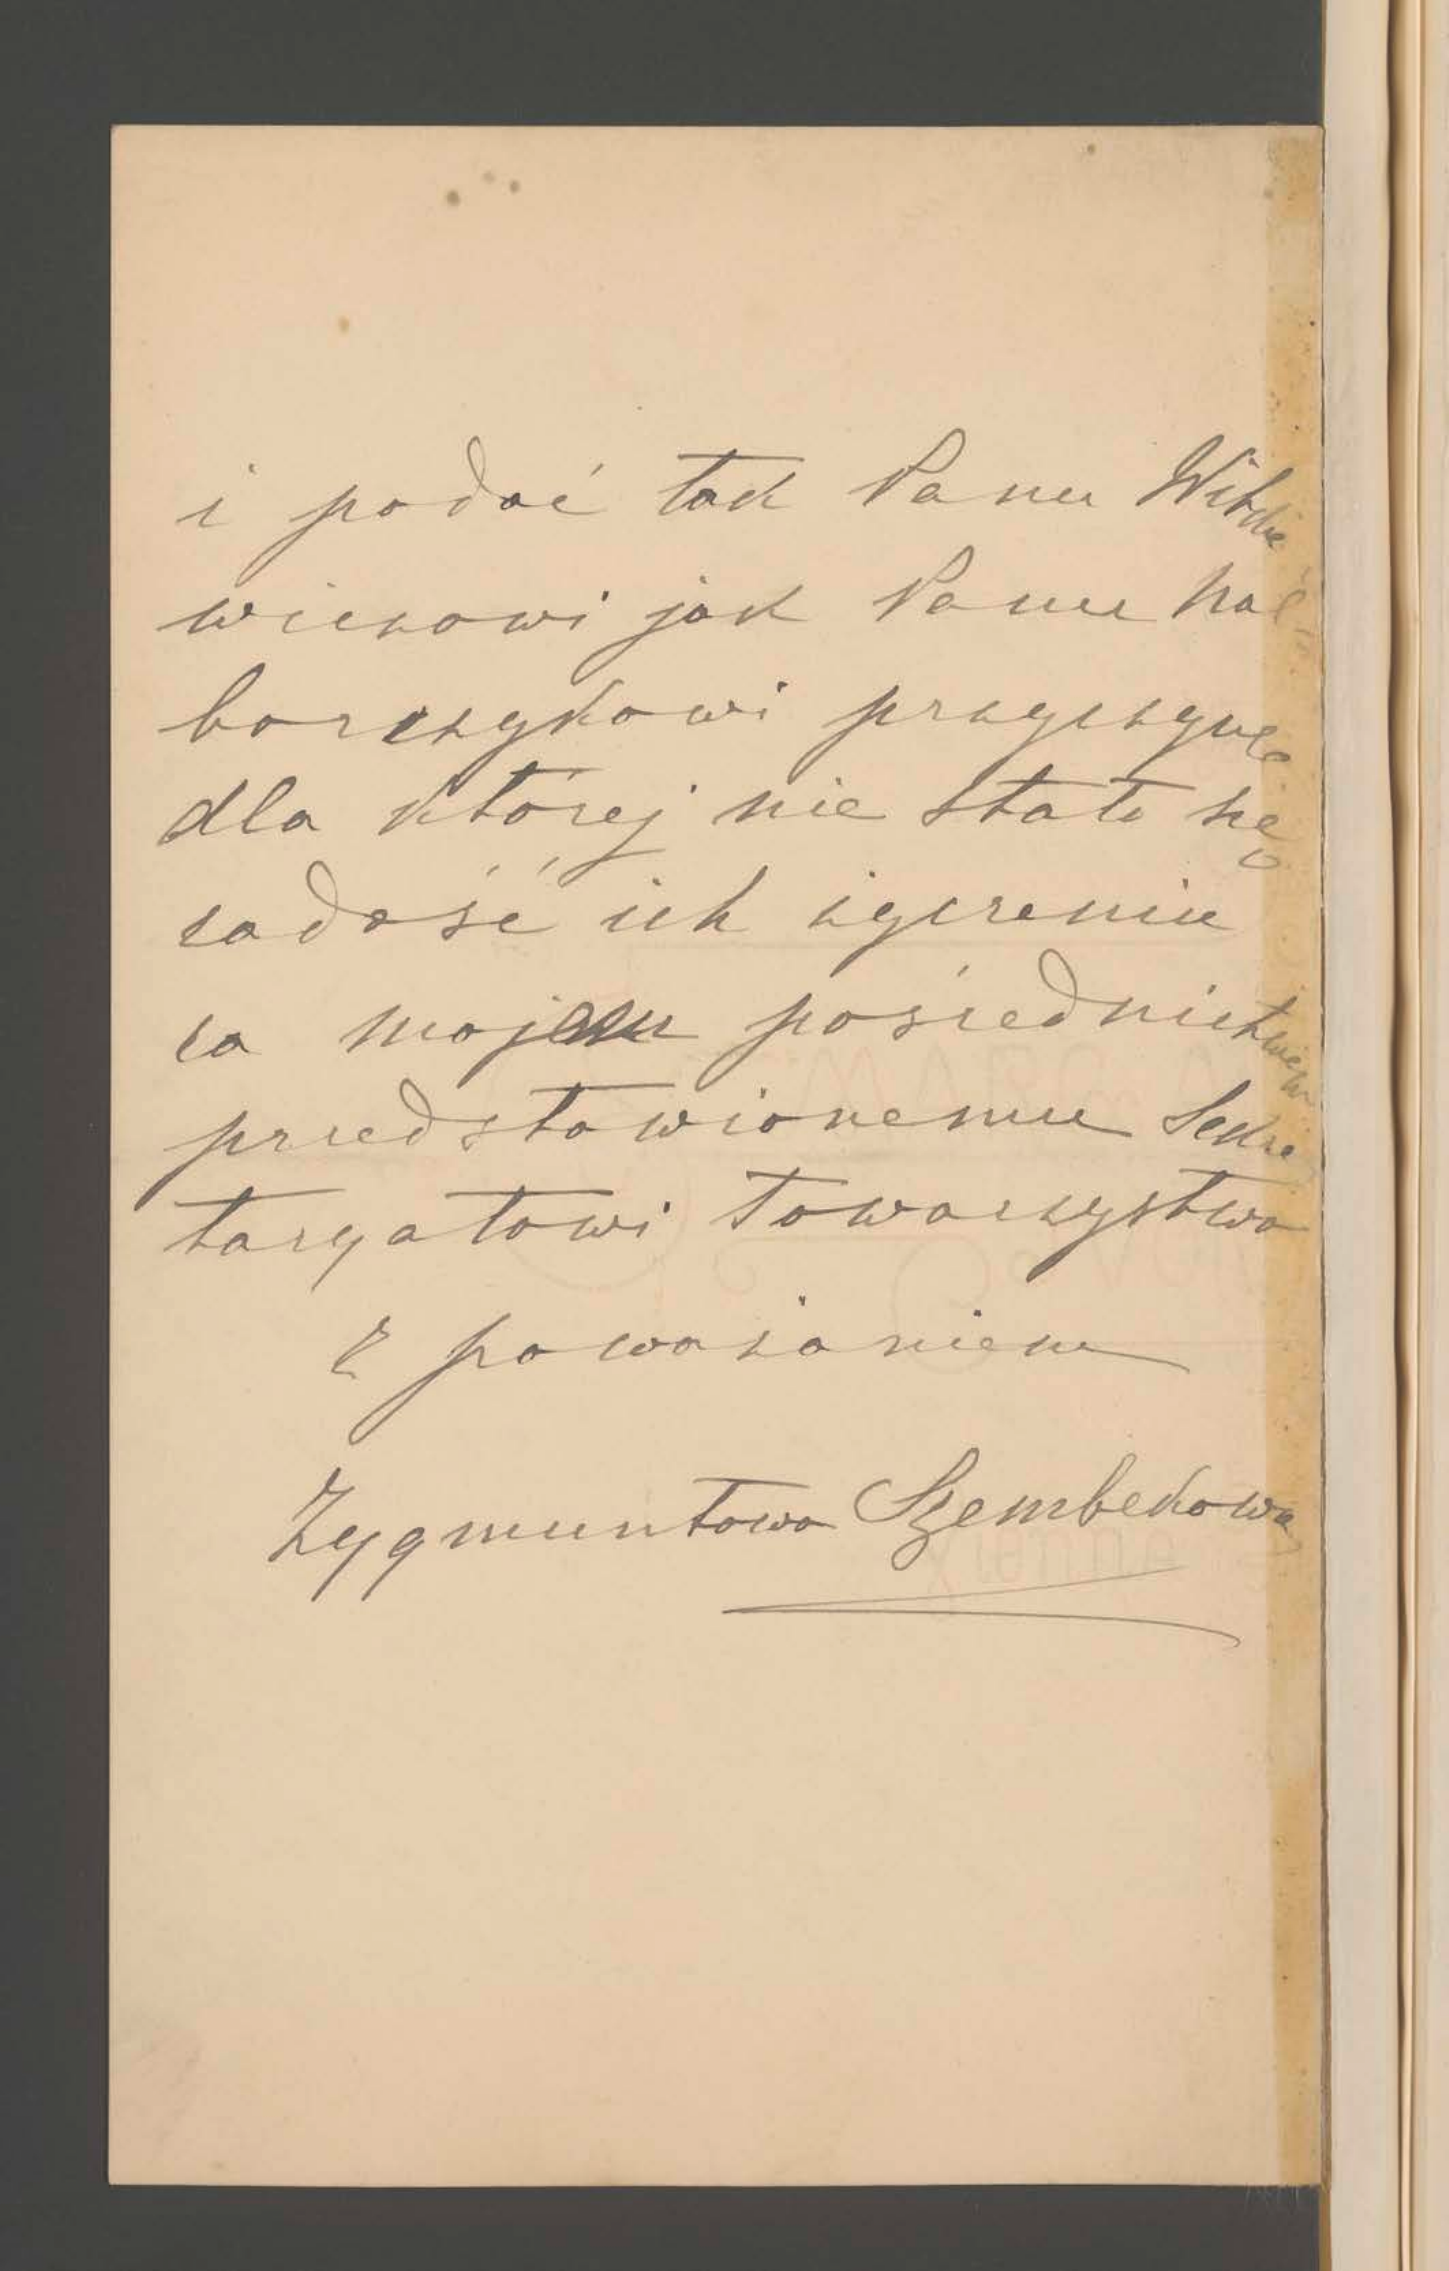 i podać tak Panu Witkie
wiczowi jak Panu Kal
borczykowi przyczynę
dla której nie stało się
zadość ich życzeniu
za mojem pośrednictwem
przedstawionemu Sekre
taryatowi Towarzystwa
Z poważaniem
Zygmuntowa Szembekowa